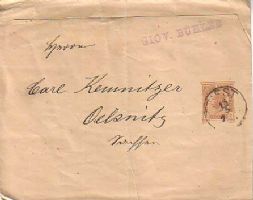 GIOV. BUHLER
Herrn
Carl Kemnitzer
Oelsnitz
Sachsen